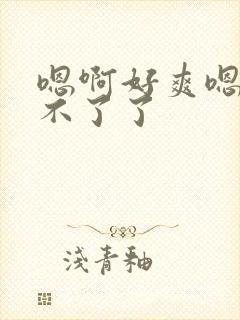 嗯啊好爽嗯
不了了
浅青釉